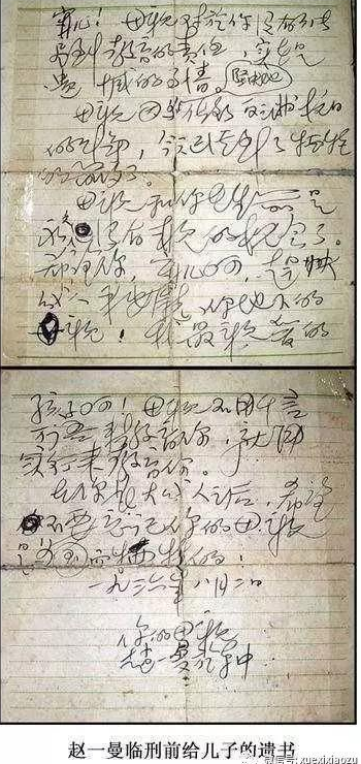 宁儿！母亲对于你没有能尽
到教育的责任，实在是
遗憾的事情。
母亲因为坚决地反满抗日
的斗争，今天已经到了牺牲
的前夕了。
母亲和你在生前是
永远没有再见的机会了。
希望你，宁儿啊！赶快
成人来安慰你地下的
母亲！我最亲爱的
孩子啊！母亲不用千言
万语来教育你，就用
实行来教育你。
在你长大成人之后，希望
不要忘记你的母亲
是为国而牺牲的！
一九三六年八月二日
你的母亲
赵一曼于车中
赵一曼临刑前给儿子的遗书
微信号: xuexixiaozu